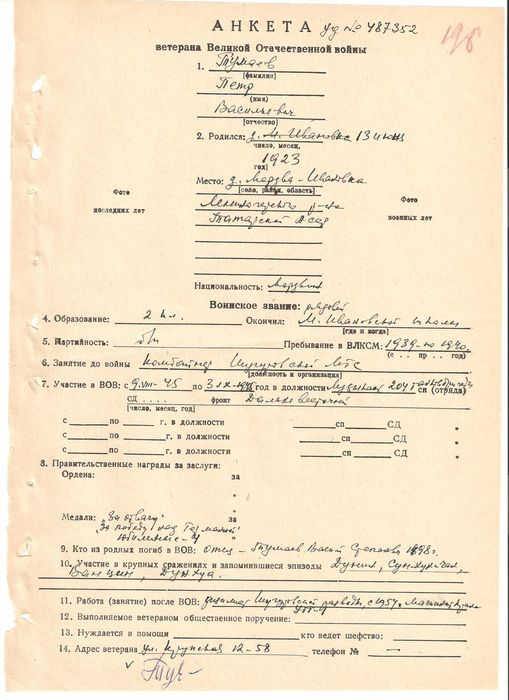 АНКЕТА уд № 487352
198
ветерана Великой Отечественной войны
1. Тумаев
(фамилия)
Петр
(имя)
Васильевич
(отчество)
2. Родился: д. М. Ивановка 13 июня
число, месяц,
1923
год)
Место: д. Мордва-Ивановка
(село, район, область)
Фото
последних лет
Фото
военных лет
Лениногорского р-на
Татарской АССР
Национальность: мордвин
Воинское звание: рядовой
4. Образование: 2 кл. Окончил: М. Ивановской школы
(где и когда)
5. Партийность: б/п Пребывание в ВЛКСМ: 1939 по 1940
(с . . пр . . год)
6. Занятие до войны комбайнер Шугуровской МТС
(должность и организация)
7. Участие в ВОВ: с 9.VIII-45 по 3.IX-1945 год в должности 204 сп (отряда)
СД . . . . фронт Дальневосточный
(число, месяц, год)
с по г. в должности сп СД "
с по г. в должности сп СД "
с по г. в должности сп СД "
8. Правительственные награды за заслуги:
Ордена: за
"
"
Медали: „За отвагу" за
„За победу над Германией" "
Юбилейные-4 "
9. Кто из родных погиб в ВОВ: Отец - Тумаев Васил 1898 г.
10. Участие в крупных сражениях и запомнившиеся эпизоды
11. Работа (занятие) после ВОВ: Шугуровской разведки, с 1957
12. Выполняемое ветераном общественное поручение:
13. Нуждается в помощи кто ведет шефство:
14. Адрес ветерана ул. Крупская 12-58 телефон № —